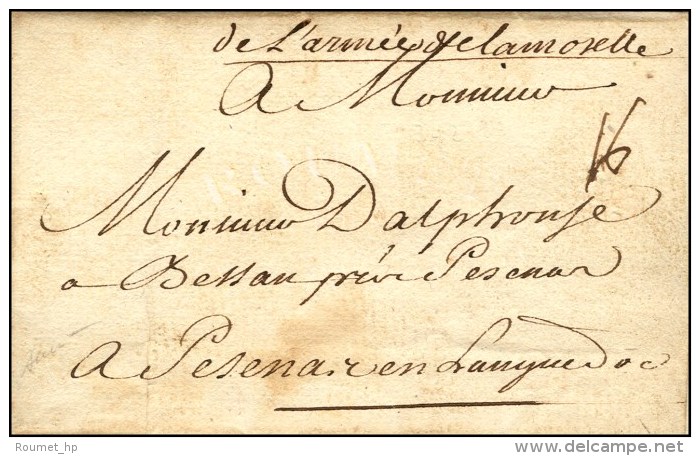 de L'armée de lamoselle
A Monsieur
16
Monsieur Dalphonse
a Bessan près Pesenas
A Pesenas en Languedoc
Roumet_hp
delcampe.net